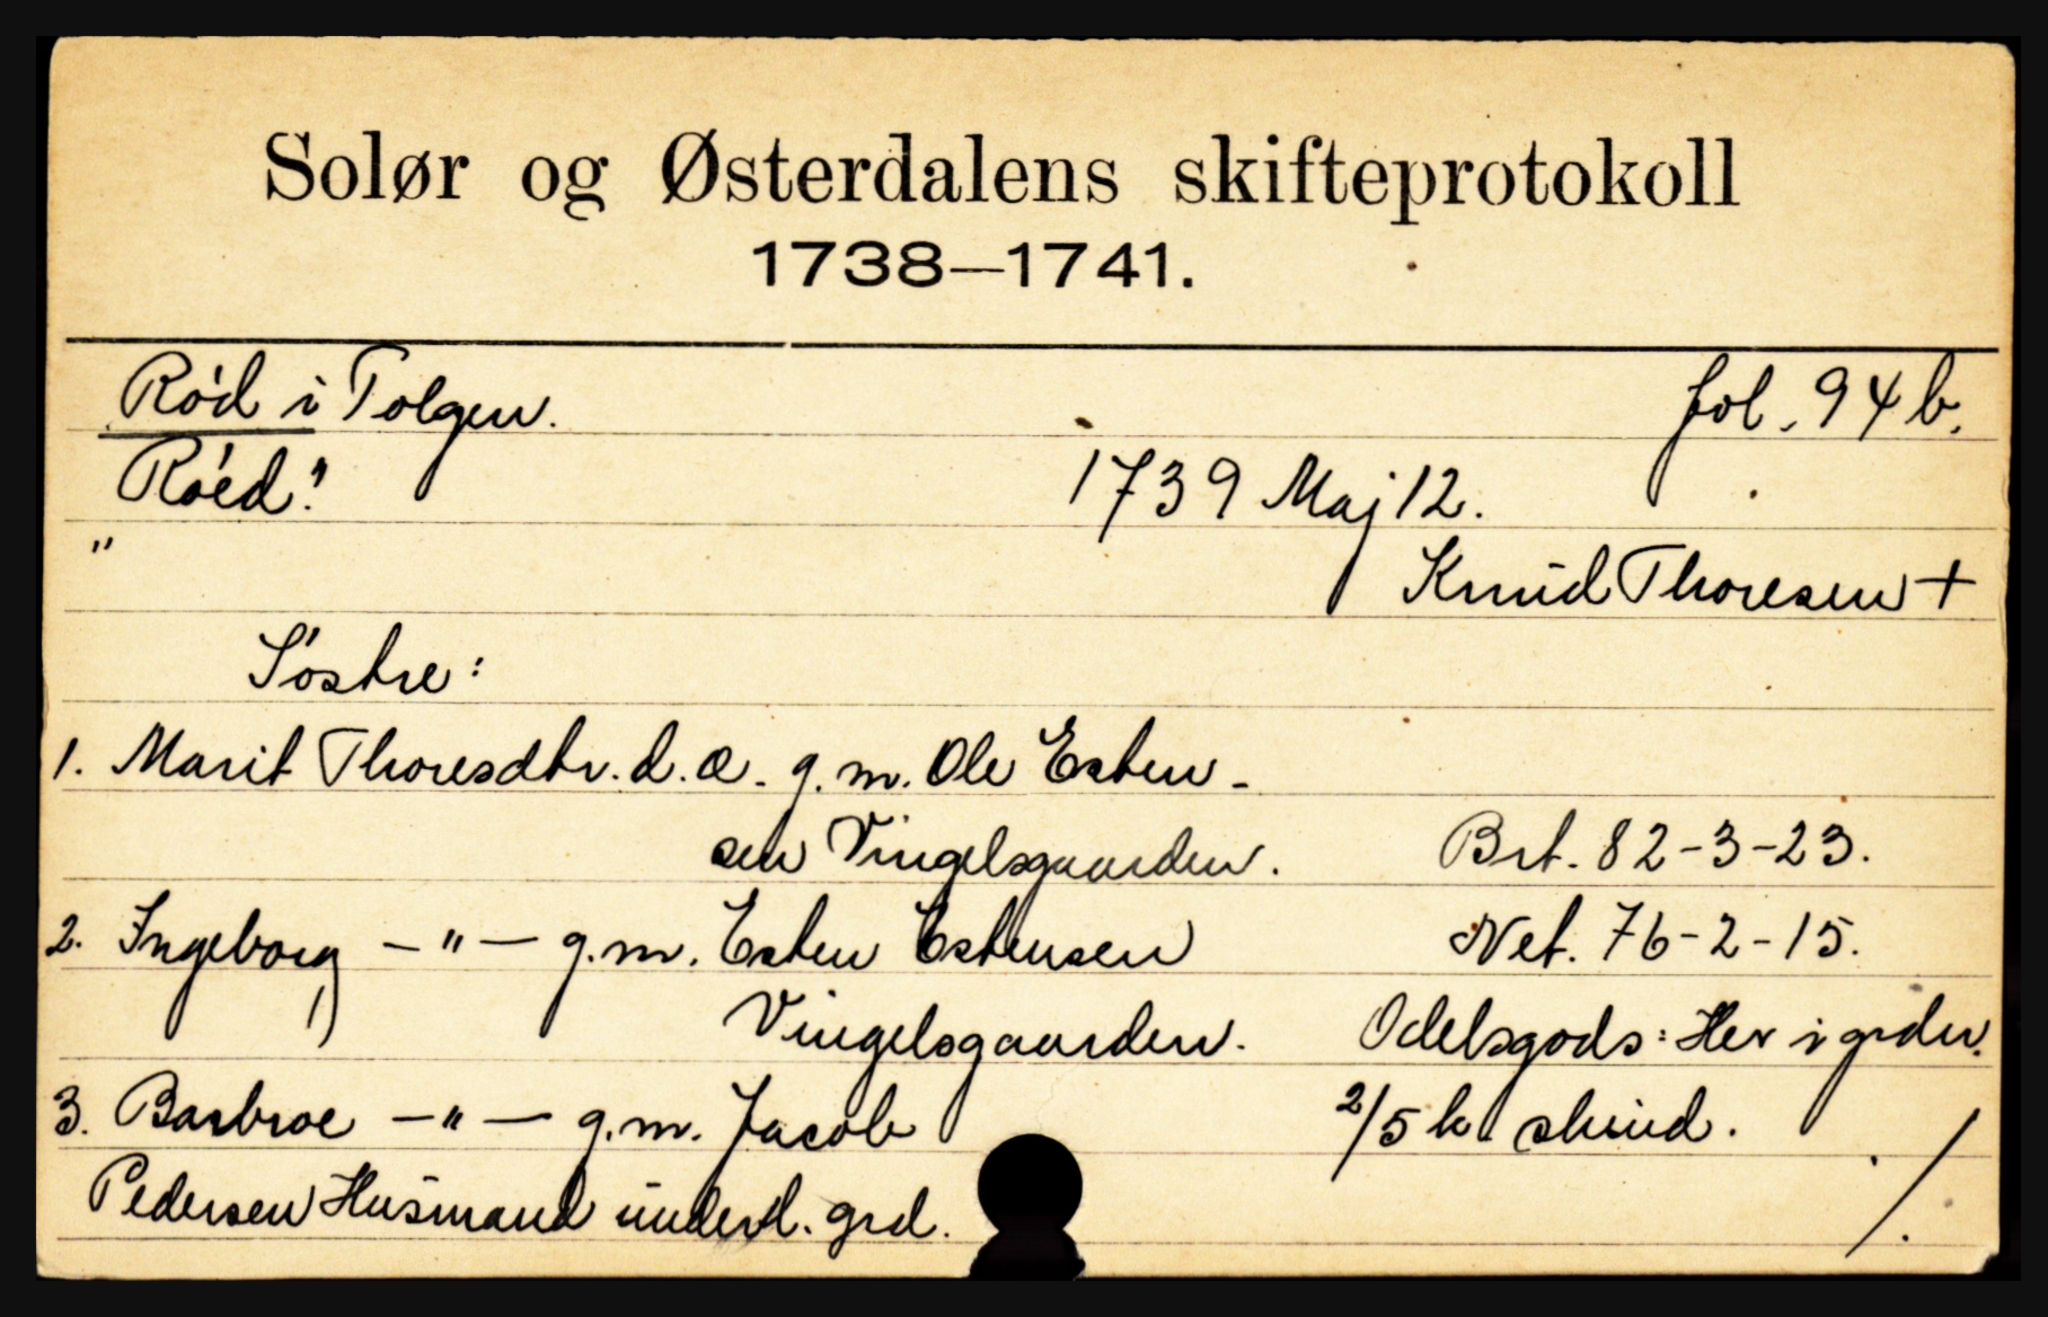 Solør og Østerdalens skifteprotokoll
1738—1741.
Rød i Tolgen. fol. 94 b.
"Røed" 1739 Maj 12.
Knud Thoresen +
Søstre:
1. Marit Thoresdtr. d. æ. g. m. Ole Esten-
sen Vingelsgaarden. Brt. 82-3-23.
2. Ingeborg —"— g. m. Esten Estensen Net. 76-2-15.
Vingelsgaarden. Odelsgods: Her i grdn.
3. Barbroe —"— g. m. Jacob 2/5 k skind.
Pedersen Husmand underd. grd. /.